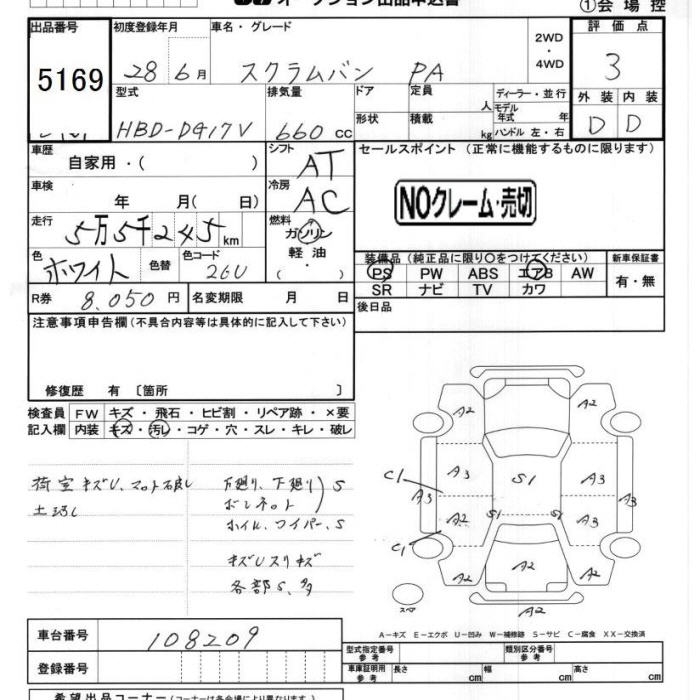 オークション出品申込書
①会場控
出品番号 初度登録年月 車名・グレード 2WD ・ 4WD 評価点
5169 28 6月 スクラムバン PA 3
型式 排気量 ドア 定員 人 ディーラー・並行 外装 内装
HBD-DG17V 660 cc 形状 積載 kg モデル年式 年 ハンドル 左・右 D D
車歴 シフト セールスポイント (正常に機能するものに限ります)
自家用・( ) AT
車検 冷房 NOクレーム・売切
年 月( 日) AC
走行 燃料
5万5千245km ガソリン
色 色替 色コード 軽油 装備品(純正品に限り〇をつけてください) 新車保証書
ホワイト 26U ・( ) PS PW ABS エアB AW 有・無
SR ナビ TV カワ
R券 8.050円 名変期限 月 日 後日品
注意事項申告欄(不具合内容等は具体的に記入して下さい)
修復歴 有 〔箇所 〕
検査員 FW キズ・飛石・ヒビ割・リペア跡・×要
記入欄 内装 キズ・汚レ・コゲ・穴・スレ・キレ・破レ
荷室キズU、マット不良 下廻り S
ボンネット
ホイル、ワイパー、S
キズUスリキズ
各部S、多
A2 A2
C1 A3 A3 S1 A3 A3
A2 S1 S1 A3
C1 A2 A2 A2
スペア A2
A-キズ E-エクボ U-凹み W-補修跡 S-サビ C-腐食 XX-交換済
車台番号 108209 型式指定番号 参考 類別区分番号 参考
登録番号 車庫証明用 参考 長さ cm 幅 cm 高さ cm
希望出品コーナー(コーナーは各会場により異なります)